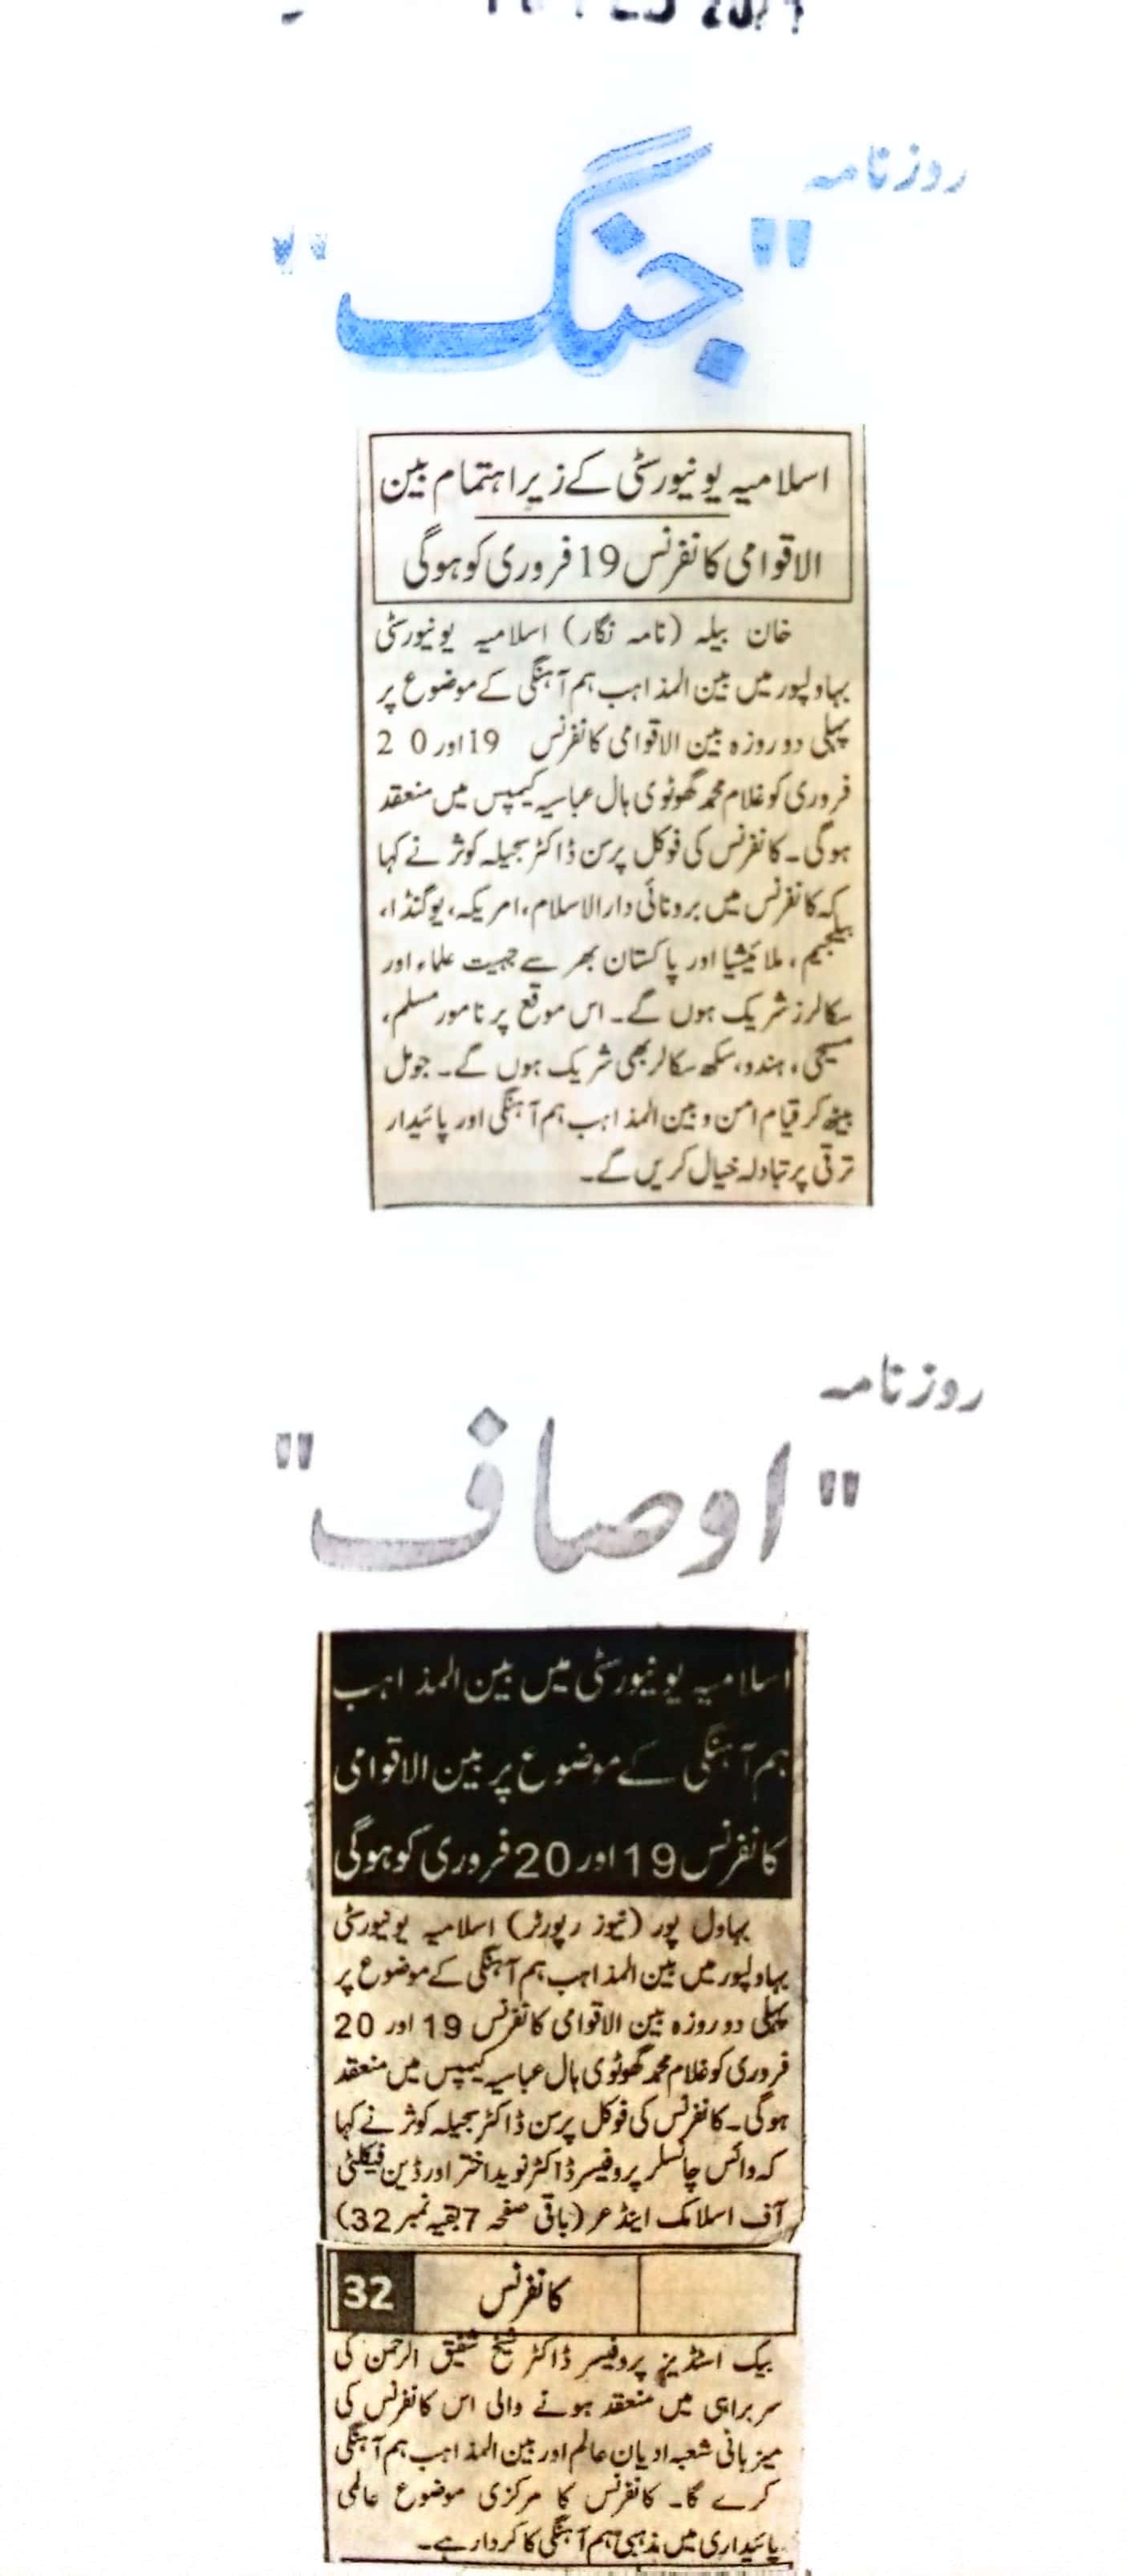 روزنامہ
"جنگ"
اسلامیہ یونیورسٹی کے زیر اہتمام بین
الاقوامی کانفرنس 19 فروری کو ہوگی
خان بیلہ (نامہ نگار) اسلامیہ یونیورسٹی
بہاولپور میں بین المذاہب ہم آہنگی کے موضوع پر
پہلی دو روزہ بین الاقوامی کانفرنس 19 اور 0 2
فروری کو غلام محمد گھوٹوی ہال عباسیہ کیمپس میں منعقد
ہوگی۔ کانفرنس کی فوکل پرسن ڈاکٹر سجیلہ کوثر نے کہا
کہ کانفرنس میں برونائی دارالاسلام، امریکہ، یوگنڈا،
بیلجیم، ملائیشیا اور پاکستان بھر سے جہیت علماء اور
سکالرز شریک ہوں گے۔ اس موقع پر نامور مسلم،
مسیحی، ہندو، سکھ سکالر بھی شریک ہوں گے۔ جو مل
بیٹھ کر قیام امن و بین المذاہب ہم آہنگی اور پائیدار
ترقی پر تبادلہ خیال کریں گے۔
روزنامہ
"اوصاف"
اسلامیہ یونیورسٹی میں بین المذاہب
ہم آہنگی کے موضوع پر بین الاقوامی
کانفرنس 19 اور 20 فروری کو ہوگی
بہاول پور (نیوز رپورٹر) اسلامیہ یونیورسٹی
بہاولپور میں بین المذاہب ہم آہنگی کے موضوع پر
پہلی دو روزہ بین الاقوامی کانفرنس 19 اور 20
فروری کو غلام محمد گھوٹوی ہال عباسیہ کیمپس میں منعقد
ہوگی۔ کانفرنس کی فوکل پرسن ڈاکٹر سجیلہ کوثر نے کہا
کہ وائس چانسلر پروفیسر ڈاکٹر نوید اختر اور ڈین فیکلٹی
آف اسلامک اینڈ عر (باقی صفحہ 7 بقیہ نمبر 32)
32 کانفرنس
بیک اسٹڈیز پروفیسر ڈاکٹر شیخ شفیق الرحمن کی
سربراہی میں منعقد ہونے والی اس کانفرنس کی
میزبانی شعبہ ادیان عالم اور بین المذاہب ہم آہنگی
کرے گا۔ کانفرنس کا مرکزی موضوع عالمی
پائیداری میں مذہبی ہم آہنگی کا کردار ہے۔